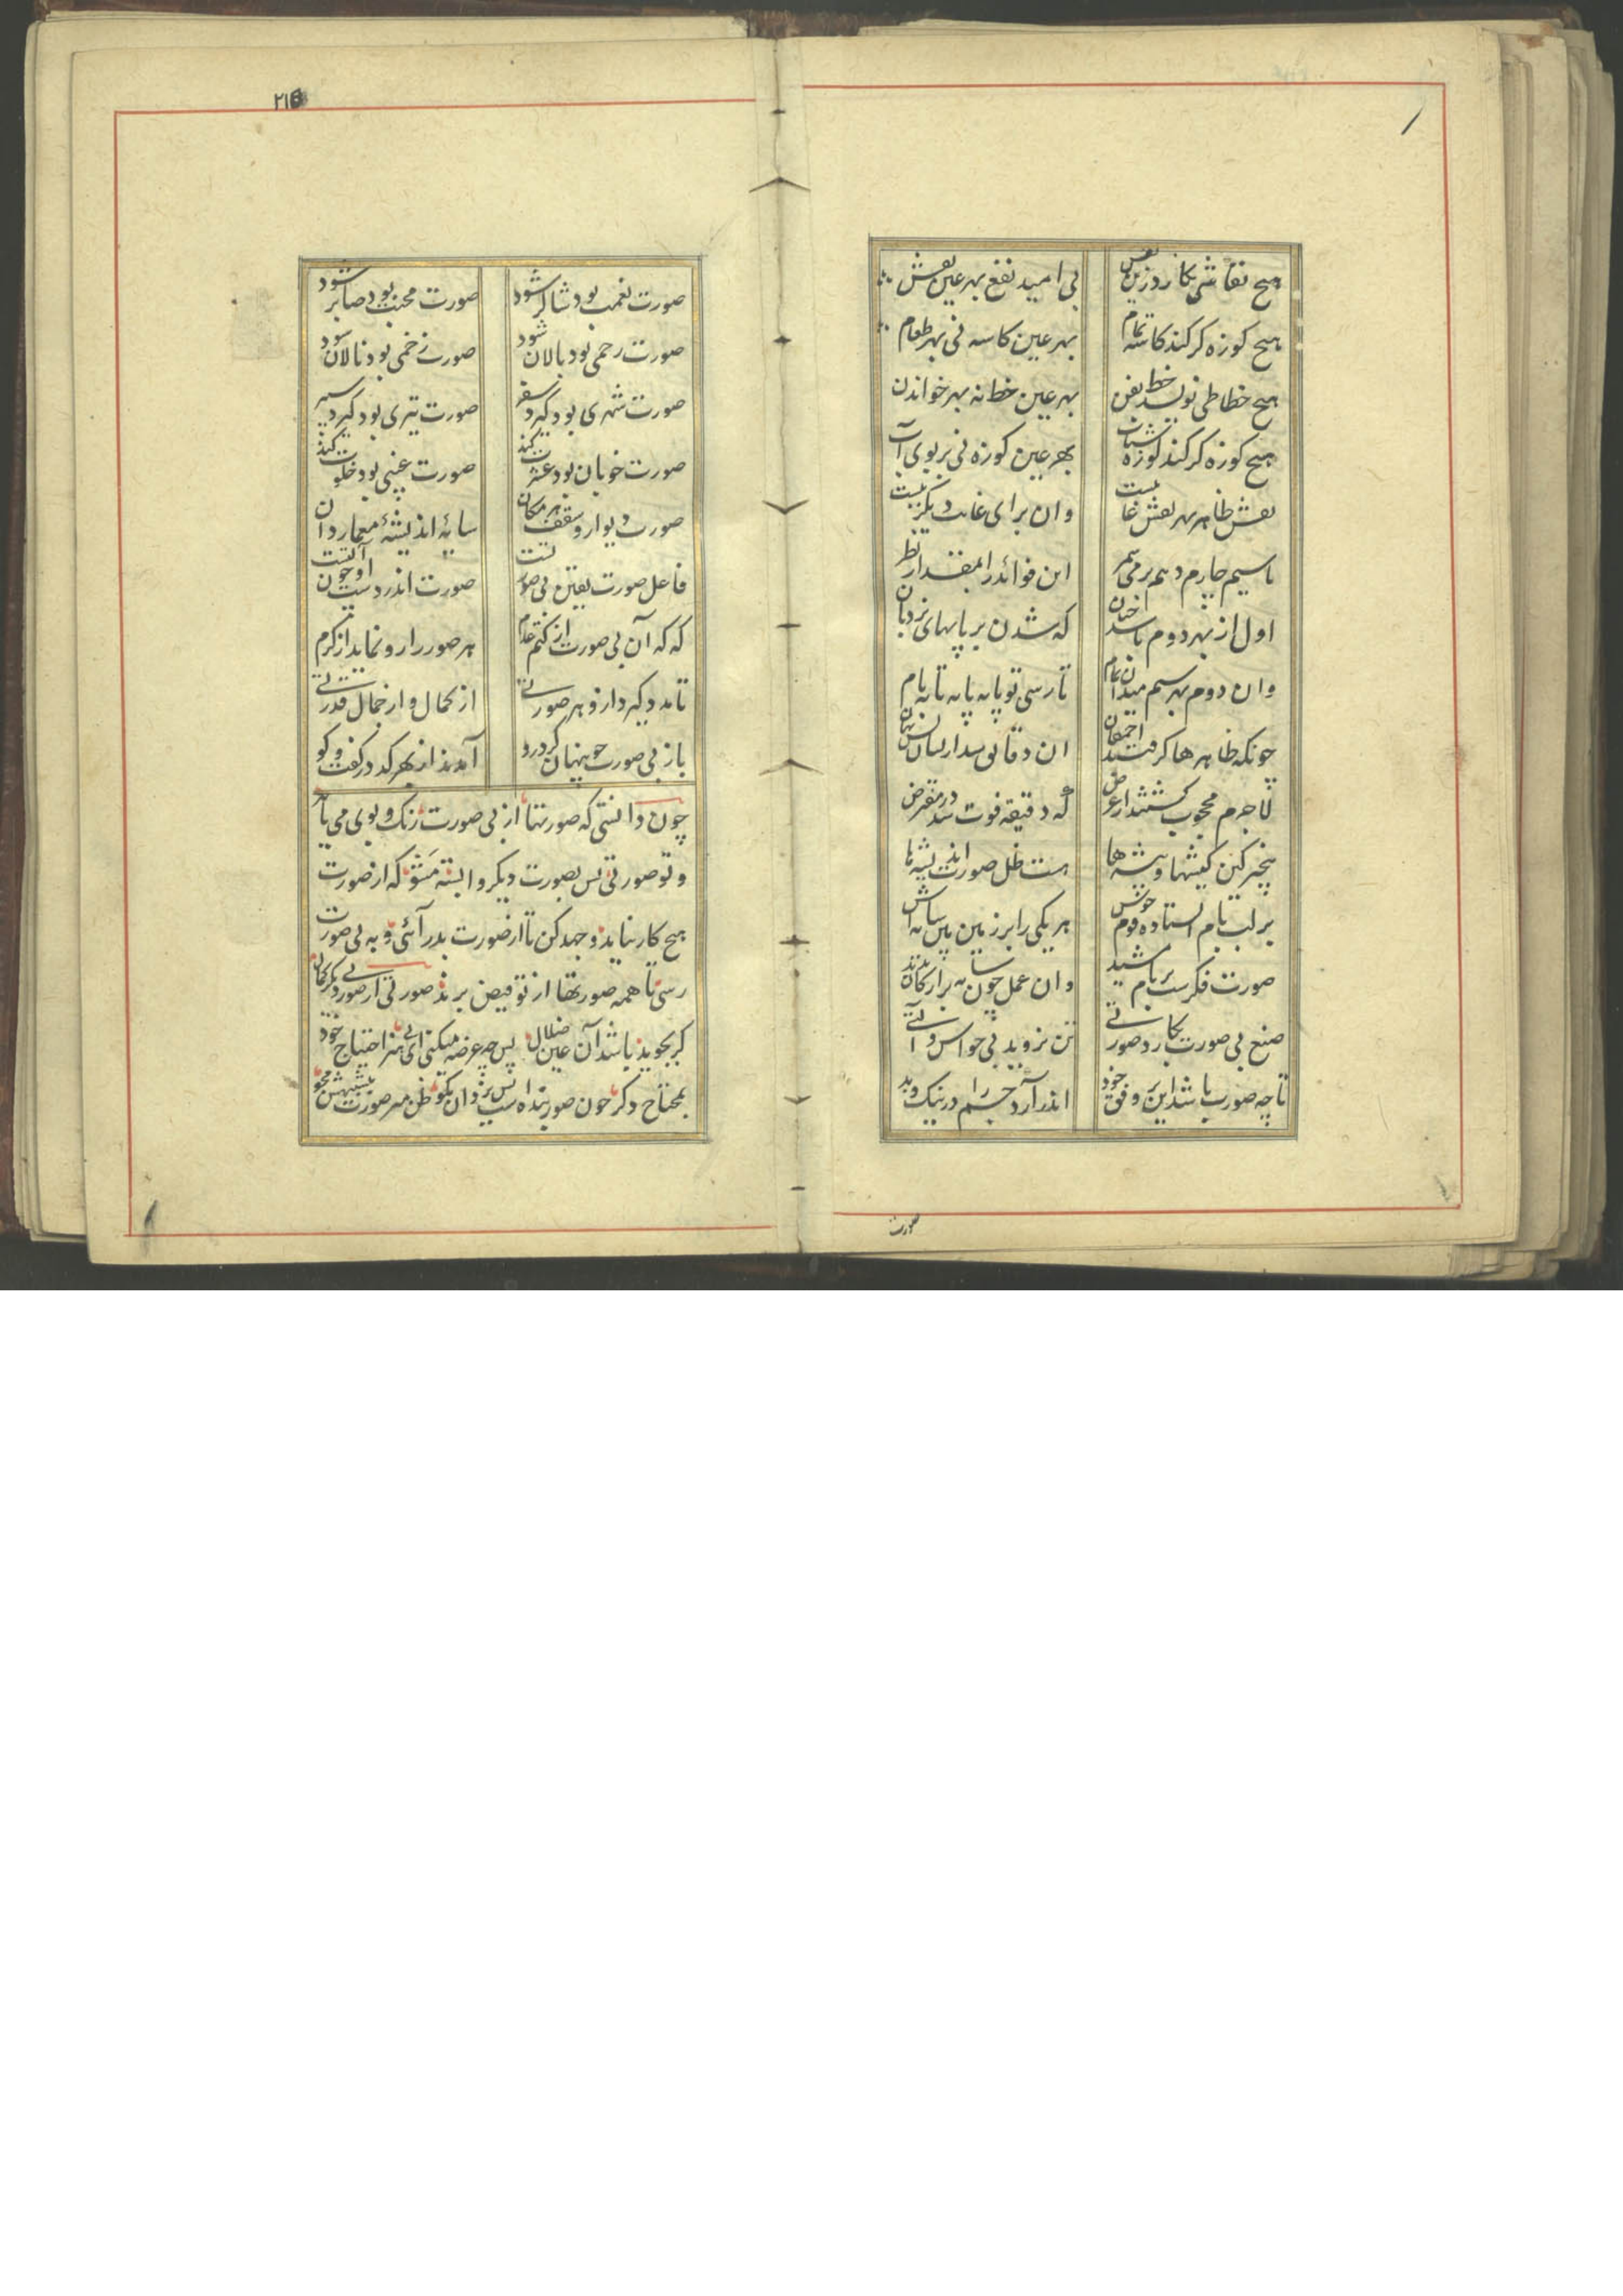 هیچ نقاشی نگارد زین نقش بی امید نفع بهر عین نقش
هیچ کوزه گر کند کاسه تمام بهر عین کاسه نی بهر طعام
هیچ خطاطی نویسد خط بفن بهر عین خط نه بهر خواندن
هیچ کوزه گر کند کوزه شتاب بهر عین کوزه نی بر بوی آب
نقش ظاهر بهر نقش غایبست وان برای غائب دیگر ببست
تا سیم چارم دهم بر می‌شمر این فوائد را بمقدار نظر
اول از بهر دوم باشد چنان که شدن بر پایهای نردبان
وان دوم بهر سیم میدان تمام تا رسی تو پایه پایه تا ببام
چونکه ظاهرها گرفتند احمقان ان دقایق شد ازیشان بس نهان
لاجرم محجوب گشتند از غرض که دقیقه فوت شد در مفترض
پنجره کین کیشها و پیشه‌ها هست ظل صورت اندیشه‌ها
بر لب بام ایستاده قوم خوش هر یکی را بر زمین بین سایه‌اش
صورت فکرست بر بام مشید وان عمل چون سایه بر ارکان پدید
صنع بی صورت بکارد صورتی تن بروید بی حواس و آلتی
تا چه صورت باشد این بر وفق خود اندر آرد جسم را در نیک و بد
صورت
۲۱۵
صورت نعمت بود شاکر شود صورت محنت بود صابر شود
صورت رحمی بود بالان شود صورت زخمی بود نالان شود
صورت شهری بود گیرد سفر صورت تیری بود گیرد سپر
صورت خوبان بود عشرت کند صورت غیبی بود خلوت کند
صورت دیوار و سقف هر مکان سایهٔ اندیشهٔ معمار دان
فاعل صورت یقین بی صورتست صورت اندر دست او چون آلتست
که که آن بی صورت از کتم عدم هر صور را رو نماید از کرم
تا مدد گیرد ازو هر صورتی از کمال و از جمال قدرتی
باز بی صورت چو پنهان کرد رو آمدند از بهر کد در گفت و گو
چون دانستی که صورتها از بی صورت رنگ و بوی می یابد
و تو صورتی پس بصورت دیگر وابسته مشو که از صورت
هیچ کار نیاید و جهد کن تا از صورت بدر آئی و به بی صورت
رسی تا همه صورتها از تو فیض برند صورتی از صورت دیگر کمال
گر بجوید باشد آن عین ضلال پس چه عرضه میکنی ای بی هنر احتیاج خود
بمحتاج دگر چون صور بنده است بر یزدان مگو ظن مبر صورت بتشبیهش مجو